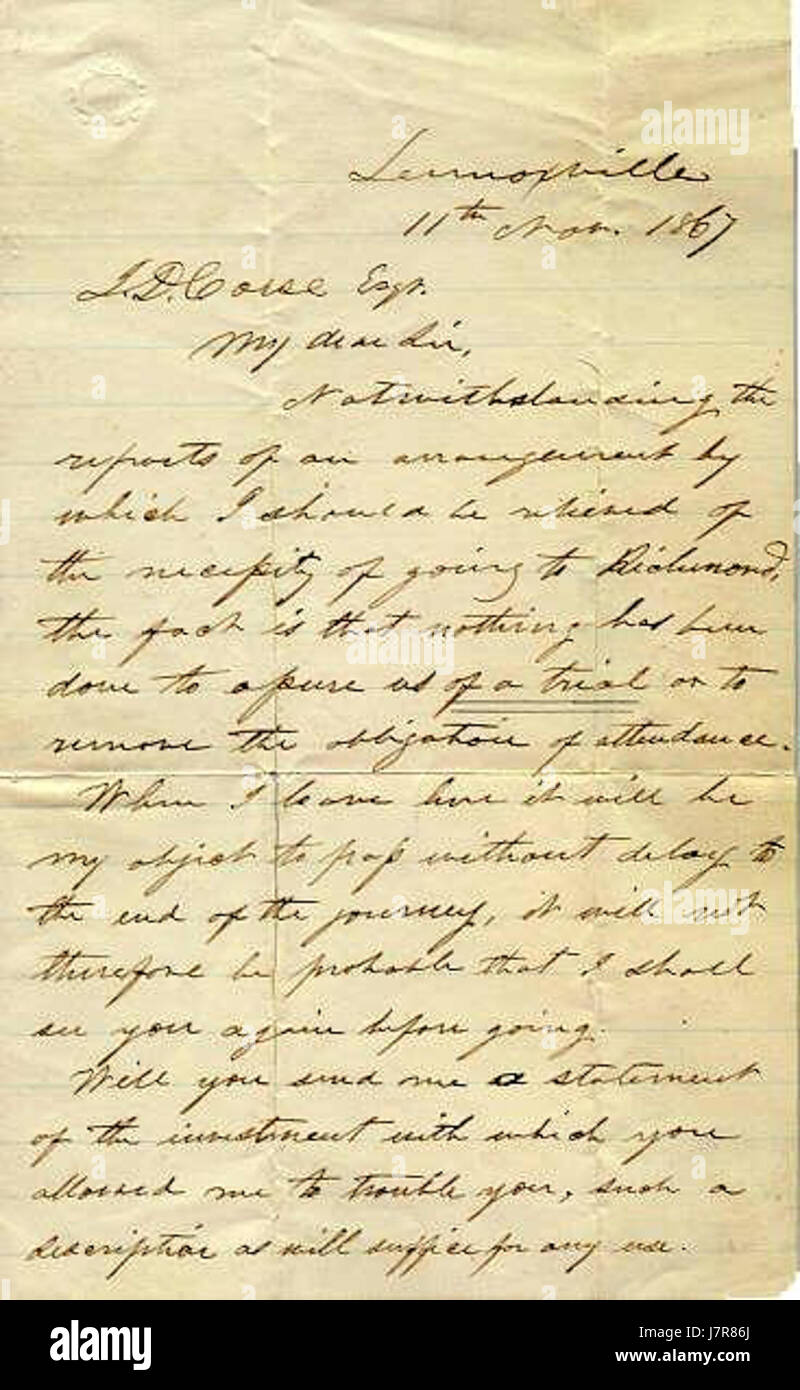 Lennoxville
11th Nov. 1867
J. D. Corse Esqr.
My dear Sir,
Notwithstanding the
reports of an arrangement by
which I should be relieved of
the necessity of going to Richmond,
the fact is that nothing has been
done to assure us of a trial or to
remove the obligation of attendance.
When I leave here it will be
my object to pass without delay to
the end of the journey, it will not
therefore be probable that I shall
see you again before going.
Will you send me a statement
of the investment with which you
allowed me to trouble you, such a
description as will suffice for any use.
alamy
Image ID: J7R86J
www.alamy.com